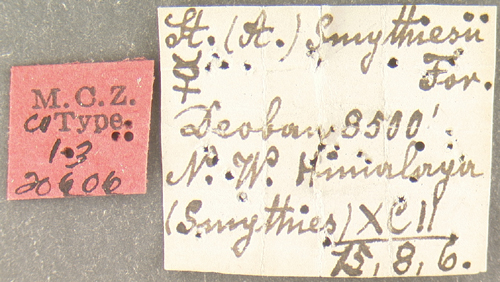 M.C.Z.
CoType.
1-3
20606
St. (A.) Smythiesii
☿ For.
Deoban 8500'.
N. W. Himalaya
(Smythies) XCII
15, 8, 6.